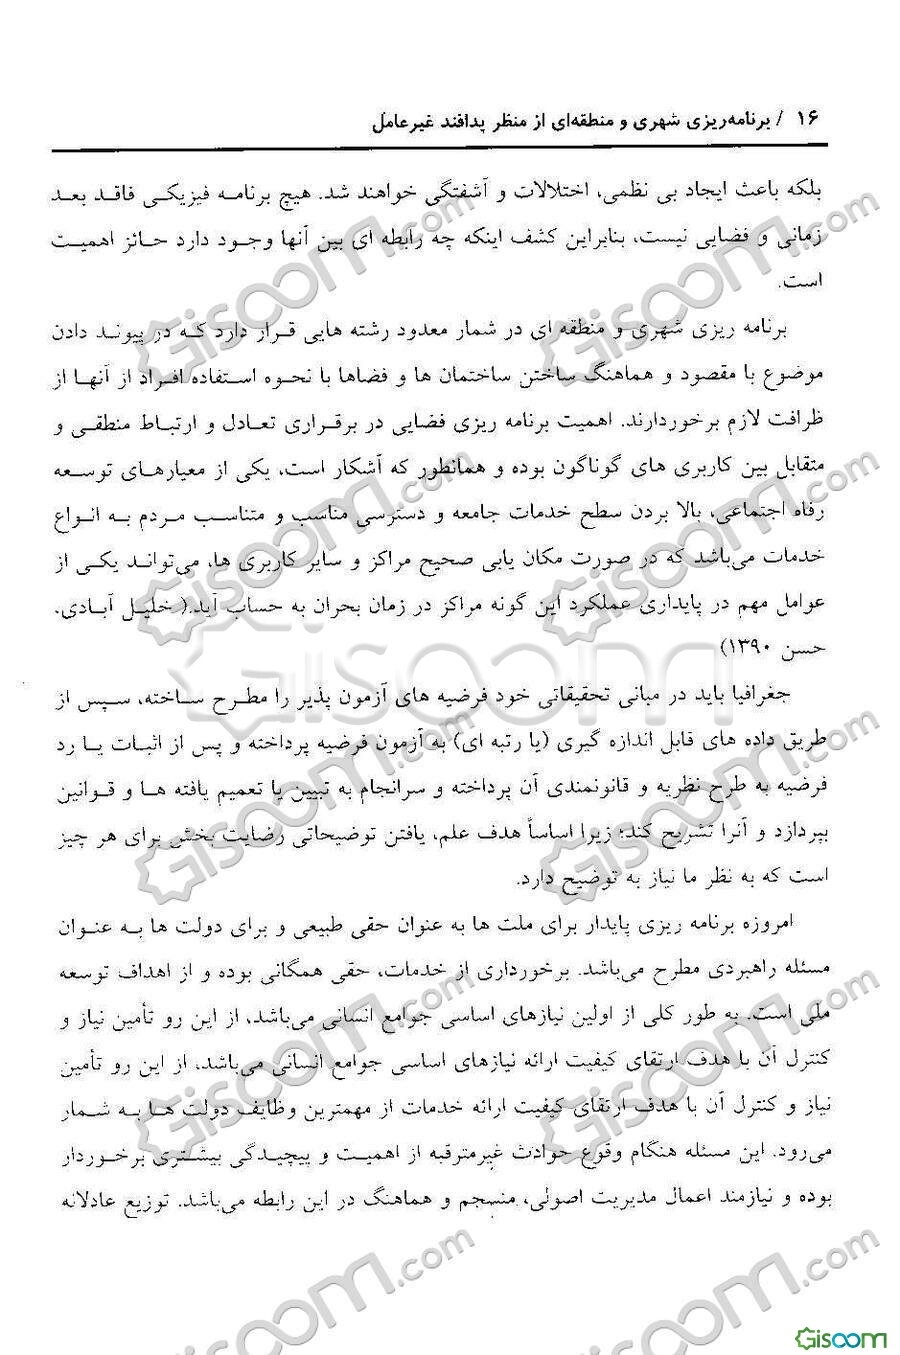 ۱۶ / برنامه‌ریزی شهری و منطقه‌ای از منظر پدافند غیرعامل
بلکه باعث ایجاد بی نظمی، اختلالات و آشفتگی خواهند شد. هیچ برنامه فیزیکی فاقد بعد
زمانی و فضایی نیست، بنابراین کشف اینکه چه رابطه ای بین آنها وجود دارد حائز اهمیت
است.
برنامه ریزی شهری و منطقه ای در شمار معدود رشته هایی قرار دارد که در پیوند دادن
موضوع با مقصود و هماهنگ ساختن ساختمان ها و فضاها با نحوه استفاده افراد از آنها از
ظرافت لازم برخوردارند. اهمیت برنامه ریزی فضایی در برقراری تعادل و ارتباط منطقی و
متقابل بین کاربری های گوناگون بوده و همانطور که آشکار است، یکی از معیارهای توسعه
رفاه اجتماعی، بالا بردن سطح خدمات جامعه و دسترسی مناسب و متناسب مردم به انواع
خدمات می‌باشد که در صورت مکان یابی صحیح مراکز و سایر کاربری ها، می‌تواند یکی از
عوامل مهم در پایداری عملکرد این گونه مراکز در زمان بحران به حساب آید.( خلیل آبادی،
حسن ۱۳۹۰)
جغرافیا باید در مبانی تحقیقاتی خود فرضیه های آزمون پذیر را مطرح ساخته، سپس از
طریق داده های قابل اندازه گیری (یا رتبه ای) به آزمون فرضیه پرداخته و پس از اثبات یا رد
فرضیه به طرح نظریه و قانونمندی آن پرداخته و سرانجام به تبیین یا تعمیم یافته ها و قوانین
بپردازد و آنرا تشریح کند؛ زیرا اساساً هدف علم، یافتن توضیحاتی رضایت بخش برای هر چیز
است که به نظر ما نیاز به توضیح دارد.
امروزه برنامه ریزی پایدار برای ملت ها به عنوان حقی طبیعی و برای دولت ها به عنوان
مسئله راهبردی مطرح می‌باشد. برخورداری از خدمات، حقی همگانی بوده و از اهداف توسعه
ملی است. به طور کلی از اولین نیازهای اساسی جوامع انسانی می‌باشد، از این رو تأمین نیاز و
کنترل آن با هدف ارتقای کیفیت ارائه نیازهای اساسی جوامع انسانی می‌باشد، از این رو تأمین
نیاز و کنترل آن با هدف ارتقای کیفیت ارائه خدمات از مهمترین وظایف دولت ها به شمار
می‌رود. این مسئله هنگام وقوع حوادث غیرمترقبه از اهمیت و پیچیدگی بیشتری برخوردار
بوده و نیازمند اعمال مدیریت اصولی، منسجم و هماهنگ در این رابطه می‌باشد. توزیع عادلانه
Gisoom